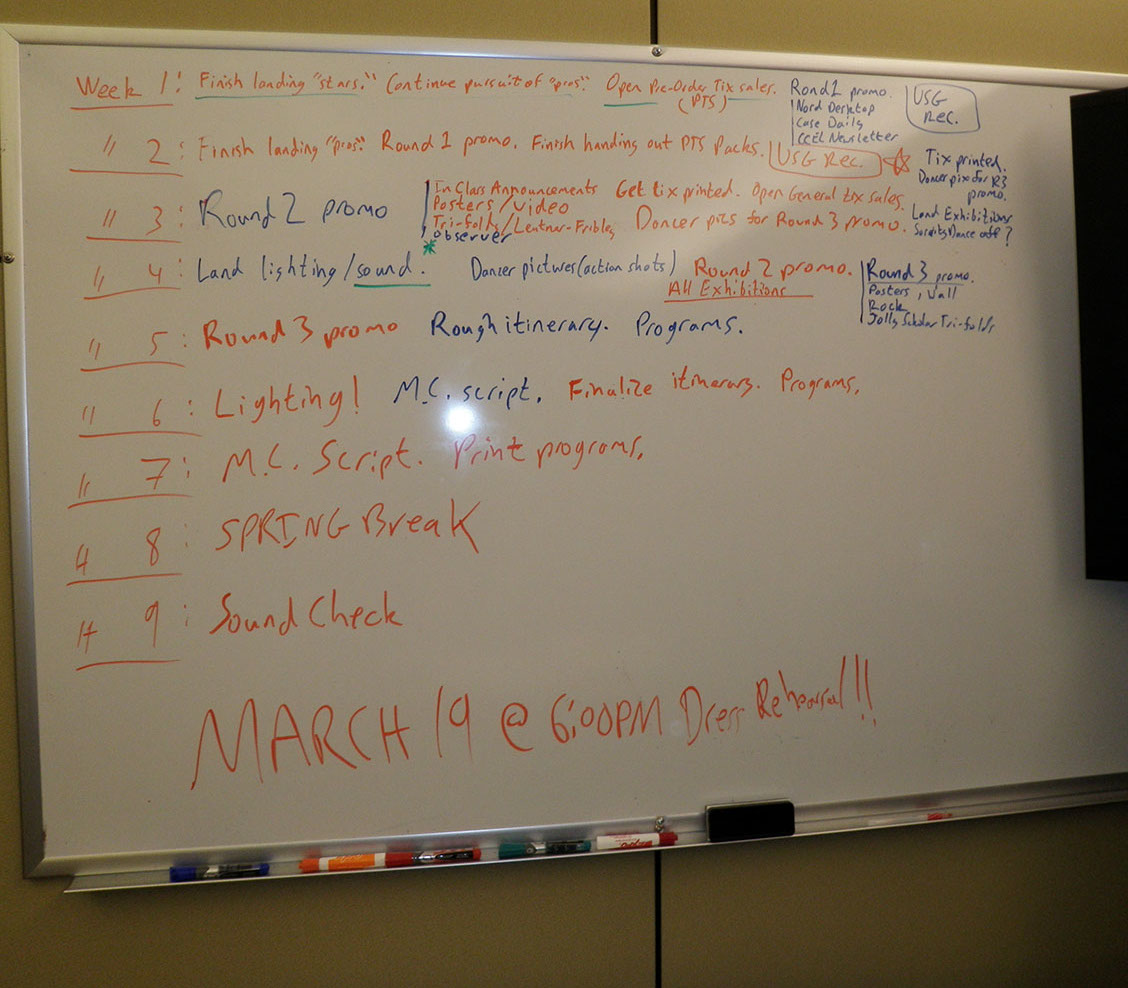 Week 1: Finish landing "stars." Continue pursuit of "pros." Open Pre-Order Tix sales.
(PTS)
Rond 1 promo.
Nord Desktop
Case Daily
CCEL Newsletter
USG
Rec.
" 2: Finish landing "pros" Round 1 promo. Finish handing out PTS Packs. USG Rec.
Tix printed.
Dancer pix for R3
promo.
Land Exhibitions
Sorority Dance off?
" 3: Round 2 promo
In Class Announcements
Posters/video
Tri-folds/Leutner-Fribley
Observer
Get tix printed. Open General tix sales.
Dancer pics for Round 3 promo.
" 4: Land lighting/sound. Dancer pictures (action shots) Round 2 promo.
All Exhibitions
Round 3 promo.
Posters, Wall
Rock
Jolly Scholar Tri-folds
" 5: Round 3 promo Rough itinerary. Programs.
" 6: Lighting! M.C. script. Finalize itinerary. Programs.
" 7: M.C. Script. Print programs.
" 8: SPRING Break
" 9: Sound Check
MARCH 19 @ 6:00PM Dress Rehearsal!!